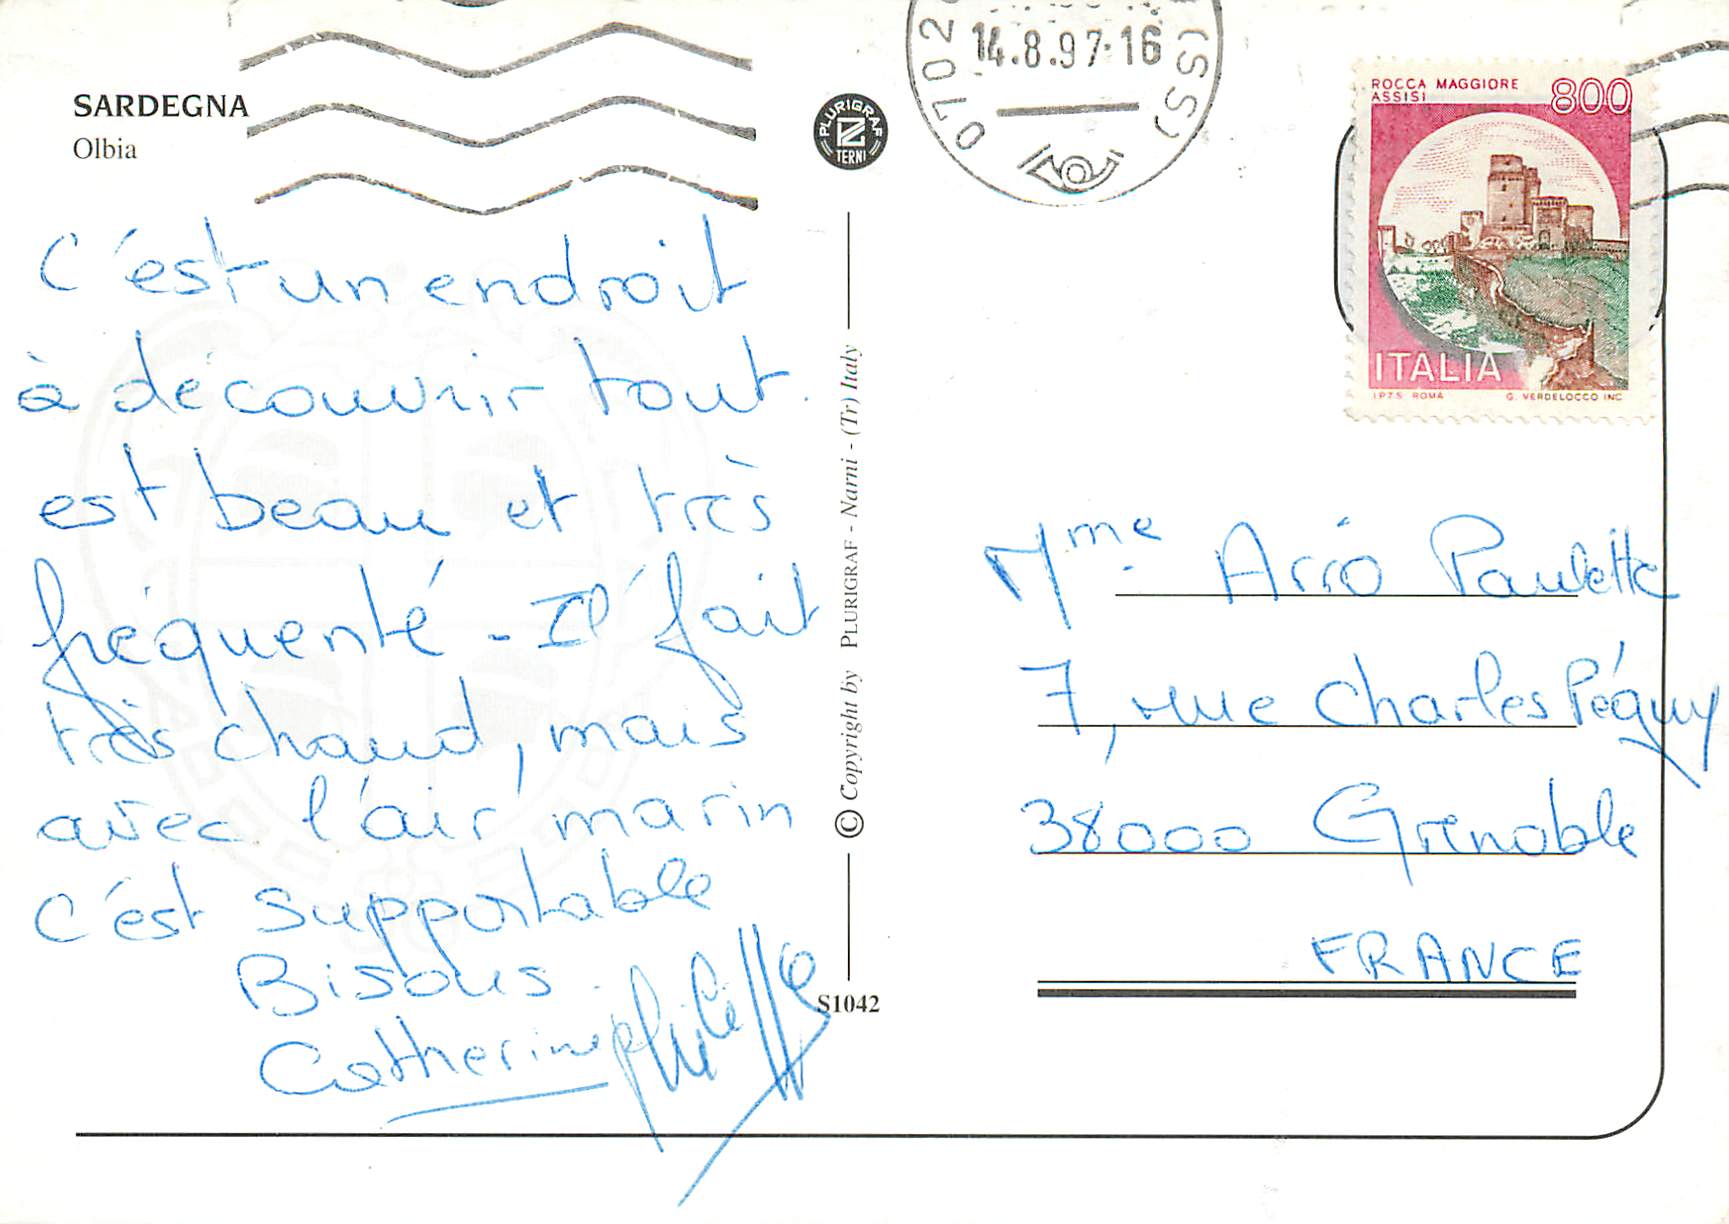 SARDEGNA
Olbia
C'est un endroit
à découvrir tout
est beau et très
fréquenté - Il fait
très chaud, mais
avec l'air marin
c'est supportable
Bisous.
Catherine
PLURIGRAF
TERNI
© Copyright by PLURIGRAF - Narni - (Tr) Italy
S1042
0702
14.8.97-16
(SS)
ROCCA MAGGIORE
ASSISI
800
ITALIA
I.P.Z.S. ROMA G. VERDELOCCO INC.
Mme Arrò Paulette
7, rue Charles Péguy
38000 Grenoble
FRANCE